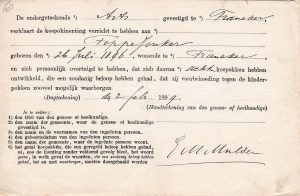 De ondergeteekende 1) Arts gevestigd te 2) Franeker
verklaart de koepokinenting verricht te hebben aan
3) Foppe Jonker
geboren den 4) 26 Juli 1896 wonende 5) Franeker
en zich persoonlijk overtuigd te hebben, dat zich daarna 6) acht koepokken hebben
ontwikkeld, die een zoodanig beloop hebben gehad, dat zij voorbehoeding tegen de kinder-
pokken zooveel mogelijk waarborgen.
(Dagteekening) 2 Feb. 1899.
(Handteekening van den genees- of heelkundige)
In te vullen:
1) den titel van den genees- of heelkundige.
2) den naam der gemeente, waar de genees- of heelkundige
gevestigd is.
3) den naam en de voornamen van den ingeënten persoon.
4) den datum der geboorte van den ingeënten persoon.
5) den naam der gemeente, waar de ingeënte persoon woont.
6) het getal koepokken, die een geregeld beloop hebben gehad,